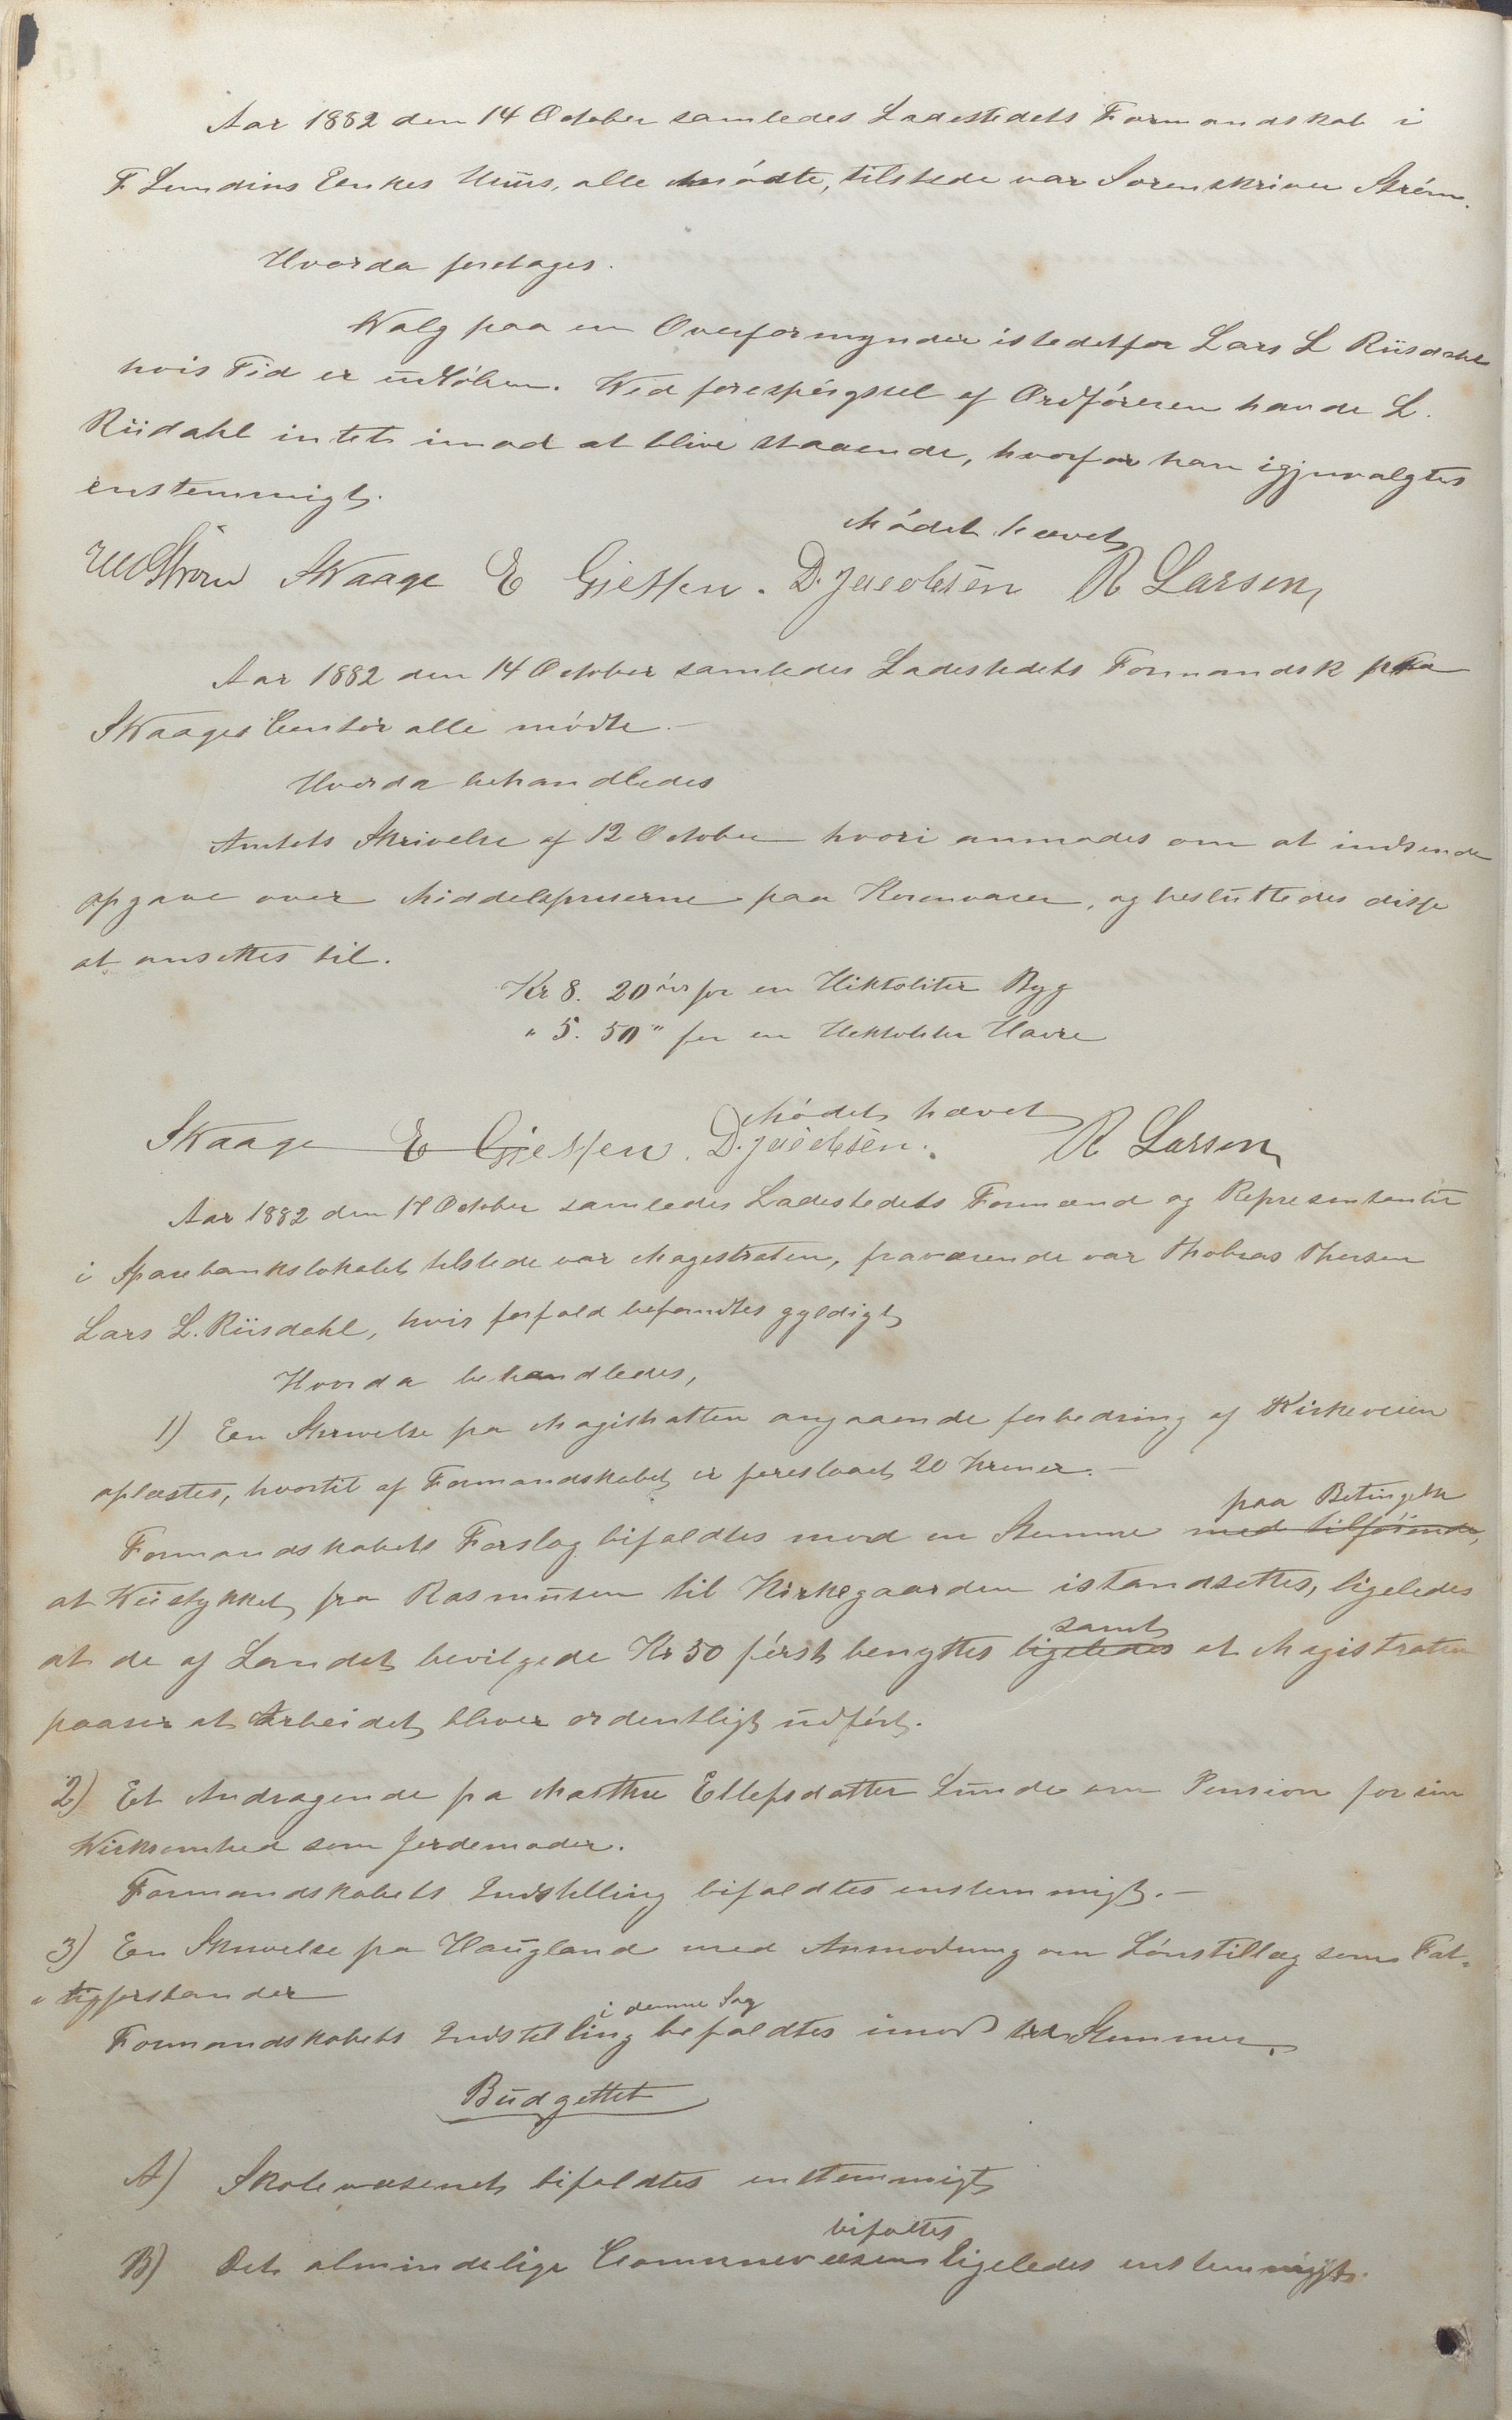 Aar 1882 den 14 October samledes Ladestedets Formandskab i
F Lundins Enkes Huus, alle mödte, tilstede var Sorenskriver Ström.
Hvorda foretages.
Walg paa en Overformynder istedetfor Lars L Riisdahl
hvis Tid er udlöben. Ved forespörgsel af Ordföreren havde L.
Riidahl intet imod at blive staaende, hvorfor han igjenvalgtes
enstemmigt.
Mödet hævet
Ström SWaage E Gjessen. D. Jacobsen R Larsen,
Aar 1882 den 14 October samledes Ladestedets Formandsk paa
SWaages Contor alle mödte.
Hvorda behandledes
Amtets Skrivelse af 12 October hvori anmodes om at indsende
opgave over Middelspriserne paa Kornvarer, og besluttedes disse
at ansettes til.
Kr 8. 20 öre for en Hektoliter Byg
" 5. 50 " for en Hektoliter Havre
Mödet hævet
SWaage E Gjessen. D. Jacobsen. R Larsen
Aar 1882 den 17 October samledes Ladestedets Formænd og Representanter
i Sparebankslokalet tilstede var Magestraten, fraværende var Thobias Thersen
Lars L. Riisdahl, hvis forfald befandtes gyldigt
Hvorda behandledes,
1) Een Skrivelse fra Magistratten angaaende forbedring af Kirkeveien
oplæstes, hvortil af Formandskabet er foreslaaet 20 Kroner.
paa Betingelse
Formandskabets Forslag bifaldtes mod en Stemme med tilföiende,
at Veistykket fra Rasmusen til Kirkegaarden istandsettes, ligeledes
samt
at de af Landet bevilgede Kr 50 först benyttes ligeledes at Magistraten
paaser at Arbeidet bliver ordentligt udfört.
2) Et Andragende fra Marthe Ellefsdatter Lunde om Pension for sin
Virksomhed som Jordemoder.
Formandskabets Indstilling bifaldtes enstemmigt.
3) Een Skrivelse fra Haugland med Anmodning om Lönstillæg som Fat-
tigforstander
i denne Sag
Formandskabets Indstilling bifaldtes imod tre Stemmer.
Budgettet
A) Skolevæsenet bifaldtes enstemmigt
bifaltes
B) Det almindelige Communevæsen ligeledes enstemmigt.